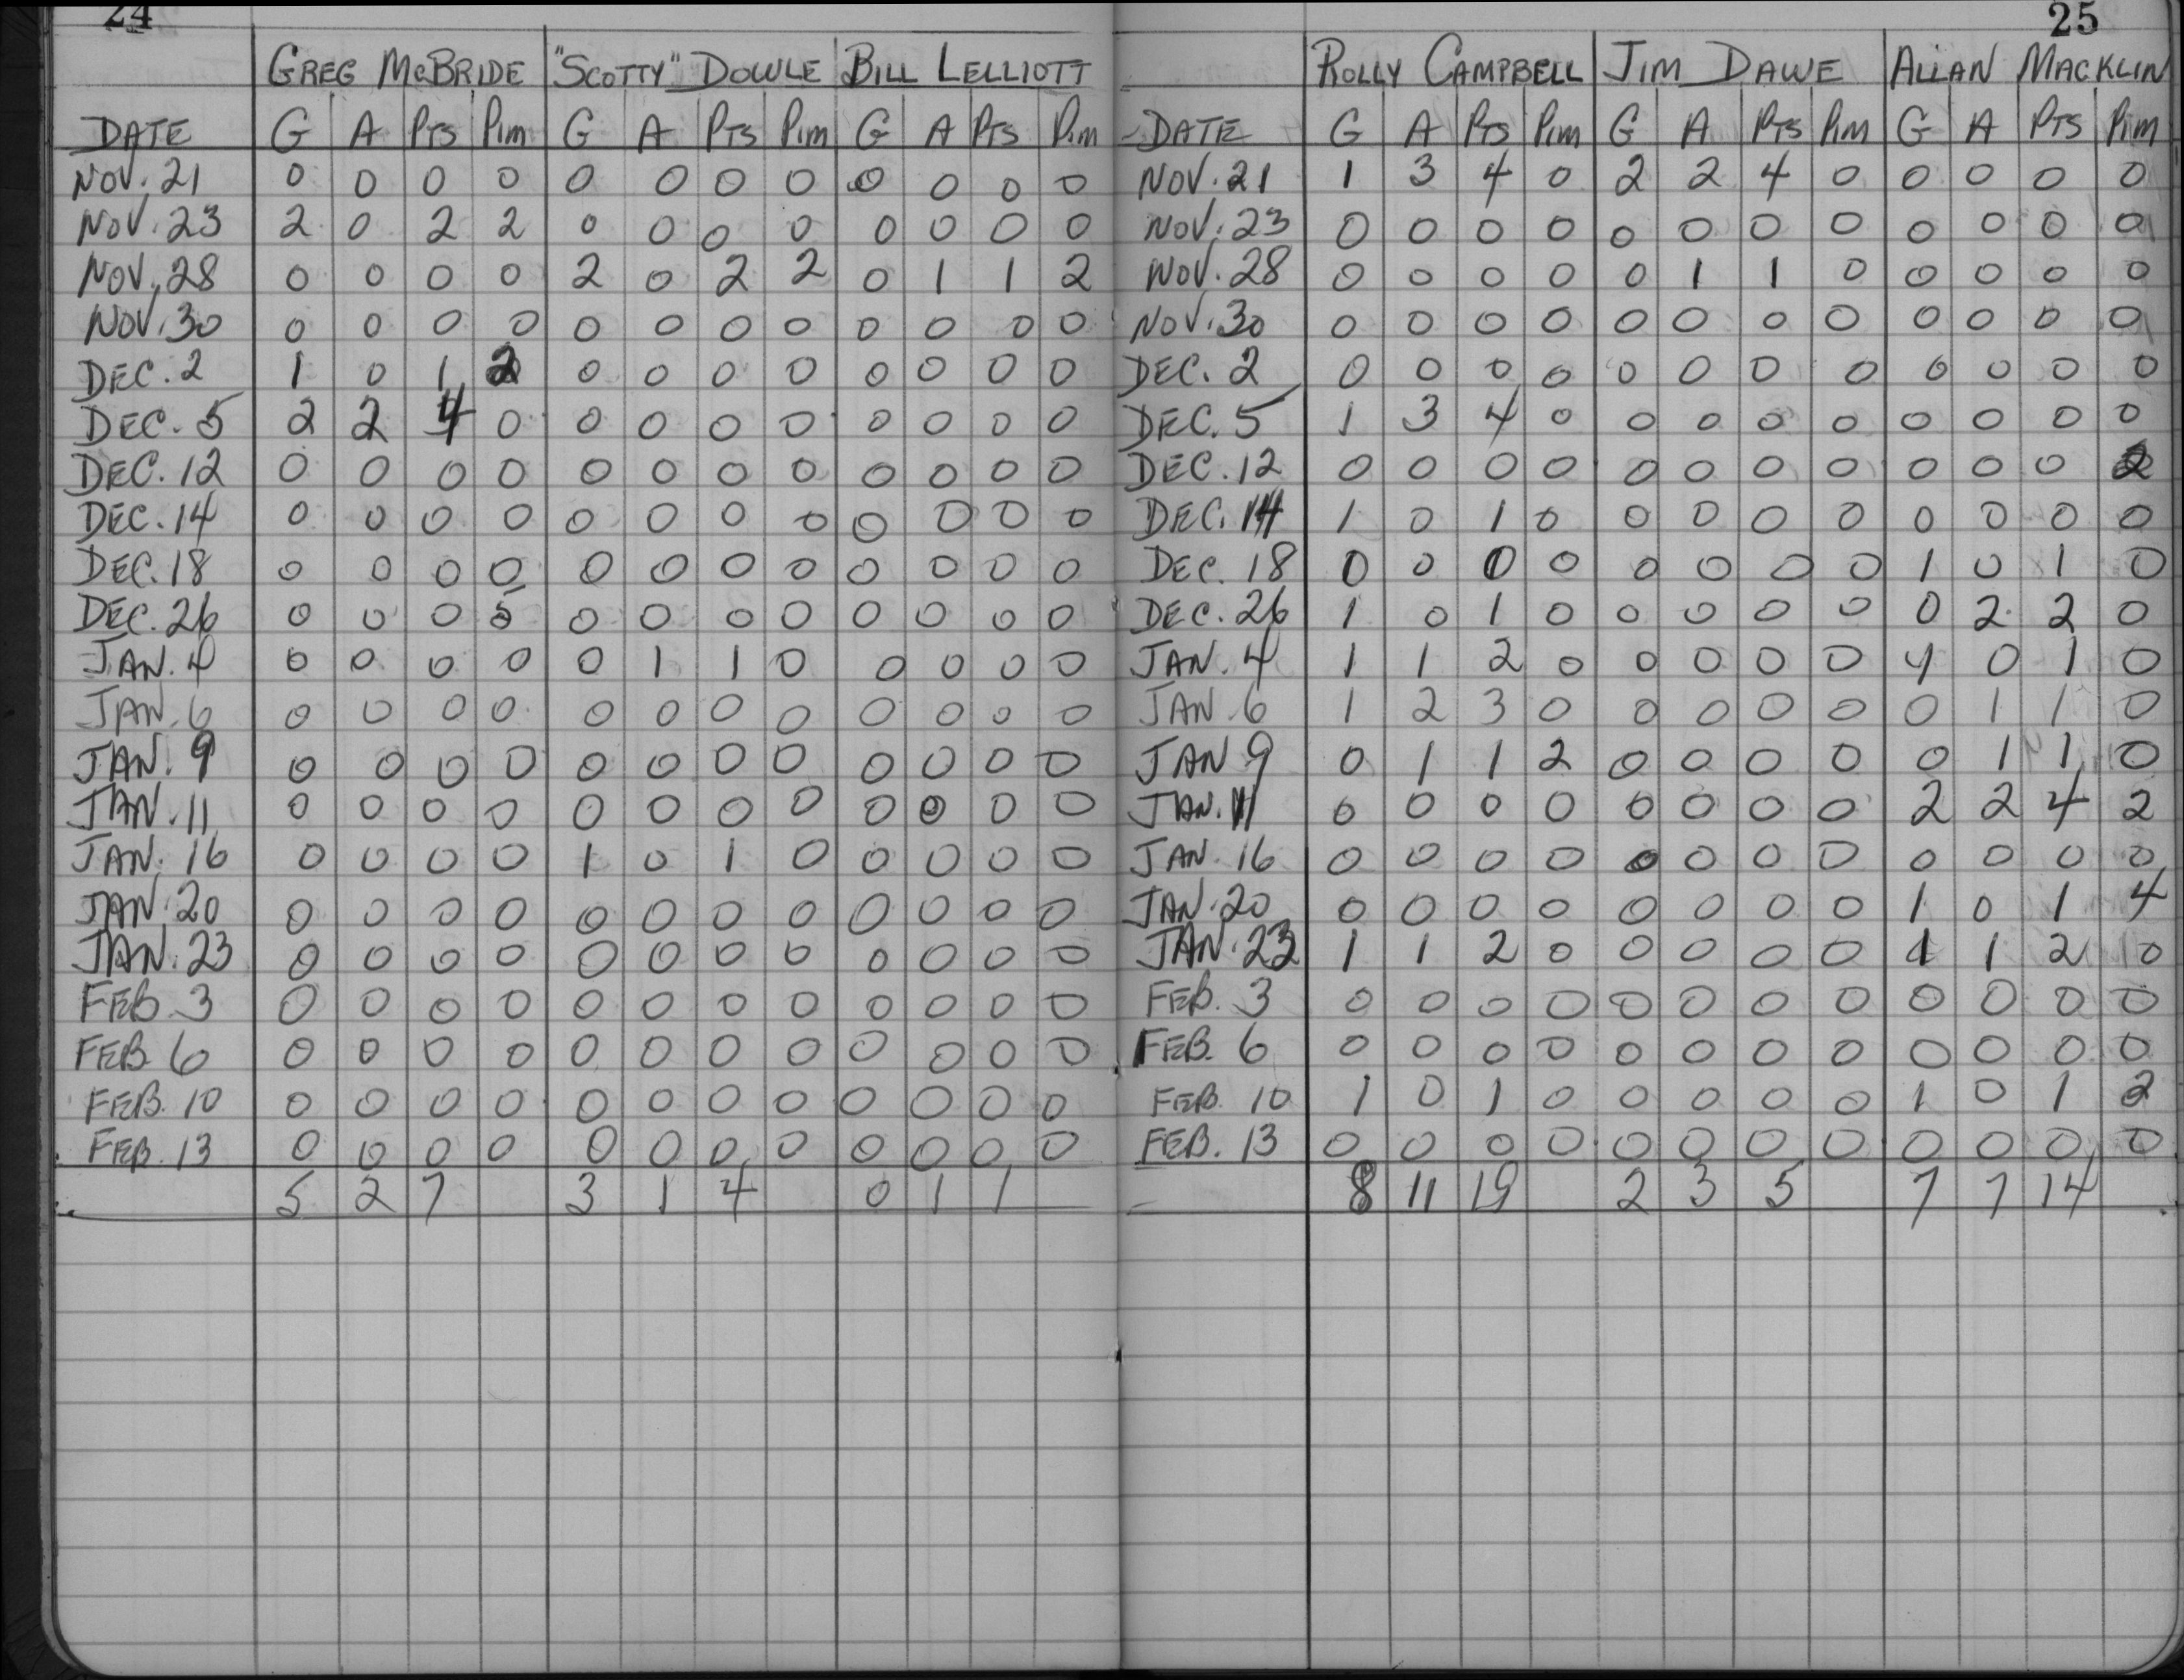 24
GREG McBRIDE "SCOTTY" DOWLE BILL LELLIOTT
DATE G A PTS PIM G A PTS PIM G A PTS PIM
NOV. 21 0 0 0 0 0 0 0 0 0 0 0 0
NOV. 23 2 0 2 2 0 0 0 0 0 0 0 0
NOV. 28 0 0 0 0 2 0 2 2 0 1 1 2
NOV. 30 0 0 0 0 0 0 0 0 0 0 0 0
DEC. 2 1 0 1 2 0 0 0 0 0 0 0 0
DEC. 5 2 2 4 0 0 0 0 0 0 0 0 0
DEC. 12 0 0 0 0 0 0 0 0 0 0 0 0
DEC. 14 0 0 0 0 0 0 0 0 0 0 0 0
DEC. 18 0 0 0 0 0 0 0 0 0 0 0 0
DEC. 26 0 0 0 5 0 0 0 0 0 0 0 0
JAN. 4 0 0 0 0 0 1 1 0 0 0 0 0
JAN. 6 0 0 0 0 0 0 0 0 0 0 0 0
JAN. 9 0 0 0 0 0 0 0 0 0 0 0 0
JAN. 11 0 0 0 0 0 0 0 0 0 0 0 0
JAN. 16 0 0 0 0 1 0 1 0 0 0 0 0
JAN. 20 0 0 0 0 0 0 0 0 0 0 0 0
JAN. 23 0 0 0 0 0 0 0 0 0 0 0 0
FEB. 3 0 0 0 0 0 0 0 0 0 0 0 0
FEB. 6 0 0 0 0 0 0 0 0 0 0 0 0
FEB. 10 0 0 0 0 0 0 0 0 0 0 0 0
FEB. 13 0 0 0 0 0 0 0 0 0 0 0 0
5 2 7 3 1 4 0 1 1
25
ROLLY CAMPBELL JIM DAWE ALLAN MACKLIN
DATE G A PTS PIM G A PTS PIM G A PTS PIM
NOV. 21 1 3 4 0 2 2 4 0 0 0 0 0
NOV. 23 0 0 0 0 0 0 0 0 0 0 0 0
NOV. 28 0 0 0 0 0 1 1 0 0 0 0 0
NOV. 30 0 0 0 0 0 0 0 0 0 0 0 0
DEC. 2 0 0 0 0 0 0 0 0 0 0 0 0
DEC. 5 1 3 4 0 0 0 0 0 0 0 0 0
DEC. 12 0 0 0 0 0 0 0 0 0 0 0 2
DEC. 14 1 0 1 0 0 0 0 0 0 0 0 0
DEC. 18 0 0 0 0 0 0 0 0 1 0 1 0
DEC. 26 1 0 1 0 0 0 0 0 0 2 2 0
JAN. 4 1 1 2 0 0 0 0 0 1 0 1 0
JAN. 6 1 2 3 0 0 0 0 0 0 1 1 0
JAN 9 0 1 1 2 0 0 0 0 0 1 1 0
JAN. 11 0 0 0 0 0 0 0 0 2 2 4 2
JAN. 16 0 0 0 0 0 0 0 0 0 0 0 0
JAN. 20 0 0 0 0 0 0 0 0 1 0 1 4
JAN. 23 1 1 2 0 0 0 0 0 1 1 2 10
FEB. 3 0 0 0 0 0 0 0 0 0 0 0 0
FEB. 6 0 0 0 0 0 0 0 0 0 0 0 0
FEB. 10 1 0 1 0 0 0 0 0 1 0 1 2
FEB. 13 0 0 0 0 0 0 0 0 0 0 0 0
8 11 19 2 3 5 7 7 14